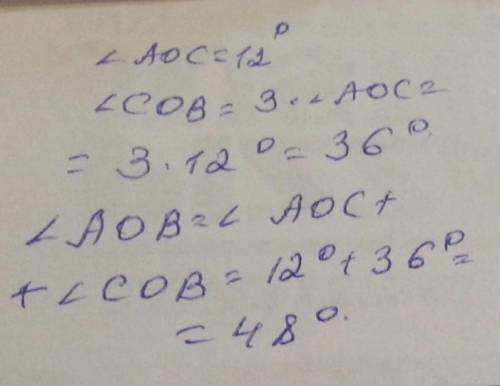 ∠AOC=12°
∠COB = 3·∠AOC=
= 3·12° = 36°.
∠AOB=∠ AOC+
+∠COB = 12°+36°=
= 48°.